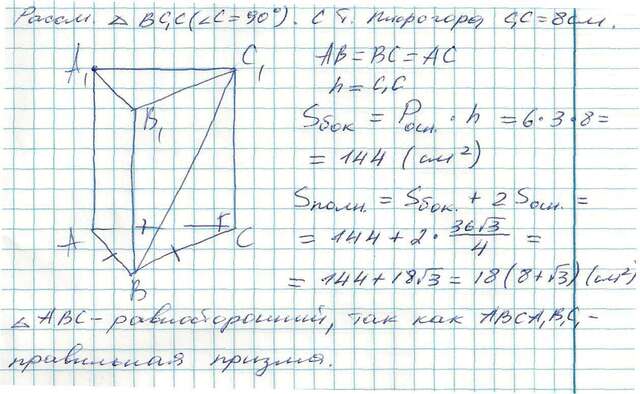 Рассм △ BC₁C (∠C = 90°). С т. Пифагора C₁C = 8 см.
AB = BC = AC
h = C₁C
Sбок = Pосн. · h = 6 · 3 · 8 =
= 144 (см²)
Sполн. = Sбок. + 2 Sосн. =
= 144 + 2 · 36√3/4 =
= 144 + 18√3 = 18(8+√3) (см²)
A₁
C₁
B₁
A
C
B
△ ABC – равносторонний, так как ABCA₁B₁C₁ –
правильная призма.